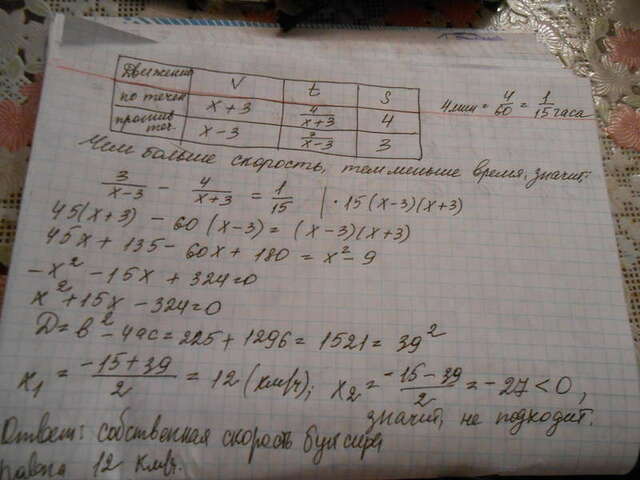 Движение V t S
по течен x+3 4/(x+3) 4
против теч. x-3 3/(x-3) 3
4 мин = 4/60 = 1/15 часа
Чем больше скорость, тем меньше время, значит:
3/(x-3) - 4/(x+3) = 1/15 | · 15(x-3)(x+3)
45(x+3) - 60(x-3) = (x-3)(x+3)
45x + 135 - 60x + 180 = x² - 9
-x² - 15x + 324 = 0
x² + 15x - 324 = 0
D = в² - 4ac = 225 + 1296 = 1521 = 39²
x₁ = (-15+39)/2 = 12 (км/ч); x₂ = (-15-39)/2 = -27 < 0,
значит, не подходит.
Ответ: собственная скорость буксира
равна 12 км/ч.